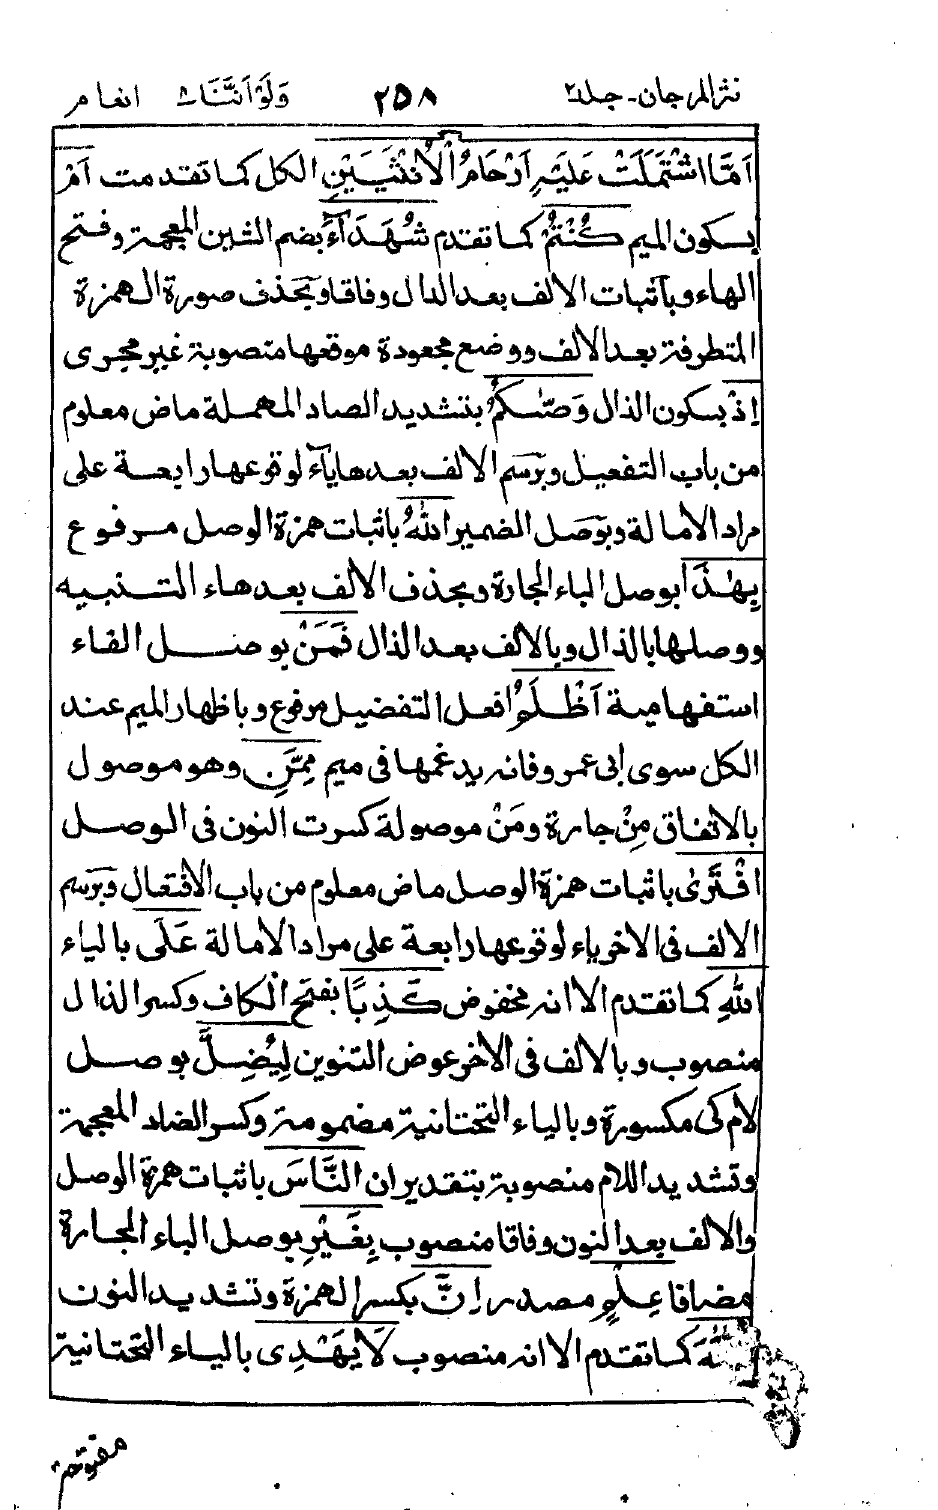 نثر المرجان - جلد٢ ٢٥٨ ولو اننا ٨ انعام
اَمَّا اشْتَمَلَتْ عَلَيْهِ اَرْحَامُ الْاُنْثَيَيْنِ الكل كما تقدمت اَمْ
بسكون الميم كُنْتُمْ كما تقدم شُهَدَآءَ بضم الشين المعجمة وفتح
الهاء وباثبات الالف بعد الدال وفاقا وبحذف صورة الهمزة
المتطرفة بعد الالف ووضع مجعودة موقعها منصوبة غير مجرى
اِذْ بسكون الذال وَصّٰىكُمُ بتشديد الصاد المهملة ماض معلوم
من باب التفعيل وبرسم الالف بعدها ياءً لوقوعها رابعة على
مراد الامالة وبوصل الضمير اللهُ باثبات همزة الوصل مرفوع
بِهٰذَا بوصل الباء الجارة وبحذف الالف بعد هاء التنبيه
ووصلها بالذال وبالالف بعد الذال فَمَنْ بوصل الفاء
استفهامية اَظْلَمُ افعل التفضيل مرفوع وباظهار الميم عند
الكل سوى ابى عمرو فانه يدغمها فى ميم مِمَّنِ وهو موصول
بالاتفاق مِنْ جارة ومَنْ موصولة كسرت النون فى الوصل
افْتَرٰى باثبات همزة الوصل ماض معلوم من باب الافتعال وبرسم
الالف فى الاخر ياء لوقوعها رابعة على مراد الامالة عَلَى بالياء
اللهِ كما تقدم الا انه مخفوض كَذِبًا بفتح الكاف وكسر الذال
منصوب وبالالف فى الاخر عوض التنوين لِيُضِلَّ بوصل
لام كى مكسورة وبالياء التحتانية مضمومة وكسر الضاد المعجمة
وتشديد اللام منصوبة بتقدير ان النَّاسَ باثبات همزة الوصل
والالف بعد النون وفاقا منصوب بِغَيْرِ بوصل الباء الجارة
مضافا عِلْمٍ مصدر اِنَّ بكسر الهمزة وتشديد النون
اللهَ كما تقدم الا انه منصوب لَا يَهْدِى بالياء التحتانية
مفتوحة